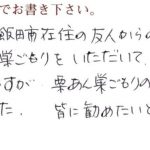 でお書き下さい。
飯田市在住の友人からの
巣ごもりをいただいて、
すが 栗あん巣ごもりの
た、 皆に勧めたいと